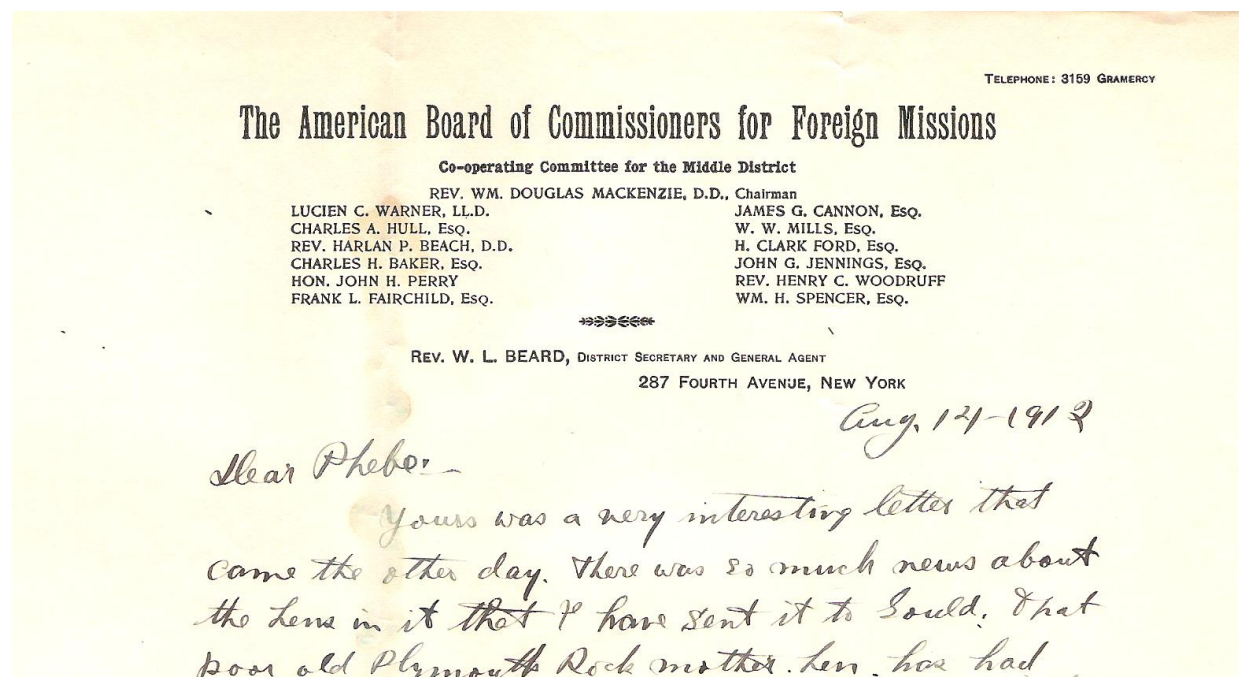 TELEPHONE: 3159 GRAMERCY
The American Board of Commissioners for Foreign Missions
Co-operating Committee for the Middle District
REV. WM. DOUGLAS MACKENZIE, D.D., Chairman
LUCIEN C. WARNER, LL.D.
CHARLES A. HULL, ESQ.
REV. HARLAN P. BEACH, D.D.
CHARLES H. BAKER, ESQ.
HON. JOHN H. PERRY
FRANK L. FAIRCHILD, ESQ.
JAMES G. CANNON, ESQ.
W. W. MILLS, ESQ.
H. CLARK FORD, ESQ.
JOHN G. JENNINGS, ESQ.
REV. HENRY C. WOODRUFF
WM. H. SPENCER, ESQ.
REV. W. L. BEARD, DISTRICT SECRETARY AND GENERAL AGENT
287 FOURTH AVENUE, NEW YORK
Aug. 14-1912
Dear Phebe:-
Yours was a very interesting letter that
came the other day. There was so much news about
the hens in it that I have sent it to Gould. That
poor old Plymouth Rock mother hen has had